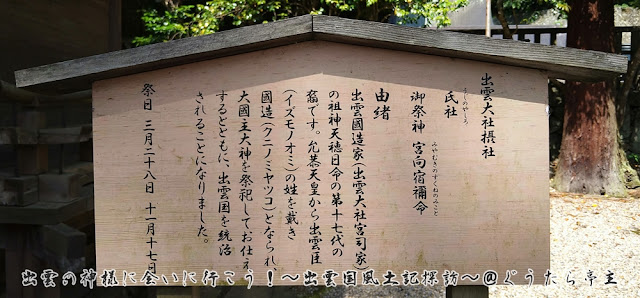 出雲大社摂社
氏社
うじのやしろ
御祭神 宮向宿禰命
みやむきのすくねのみこと
由緒
出雲國造家(出雲大社宮司家)
の祖神天穂日命の第十七代の
裔です。允恭天皇から出雲臣
(イズモノオミ)の姓を戴き
國造(クニノミヤツコ)となられ
大國主大神を祭祀してお仕え
するとともに、出雲国を統治
されることになりました。
祭日 三月二十八日 十一月十七日
出雲の神様に会いに行こう!~出雲国風土記探訪~@ぐうたら亭主